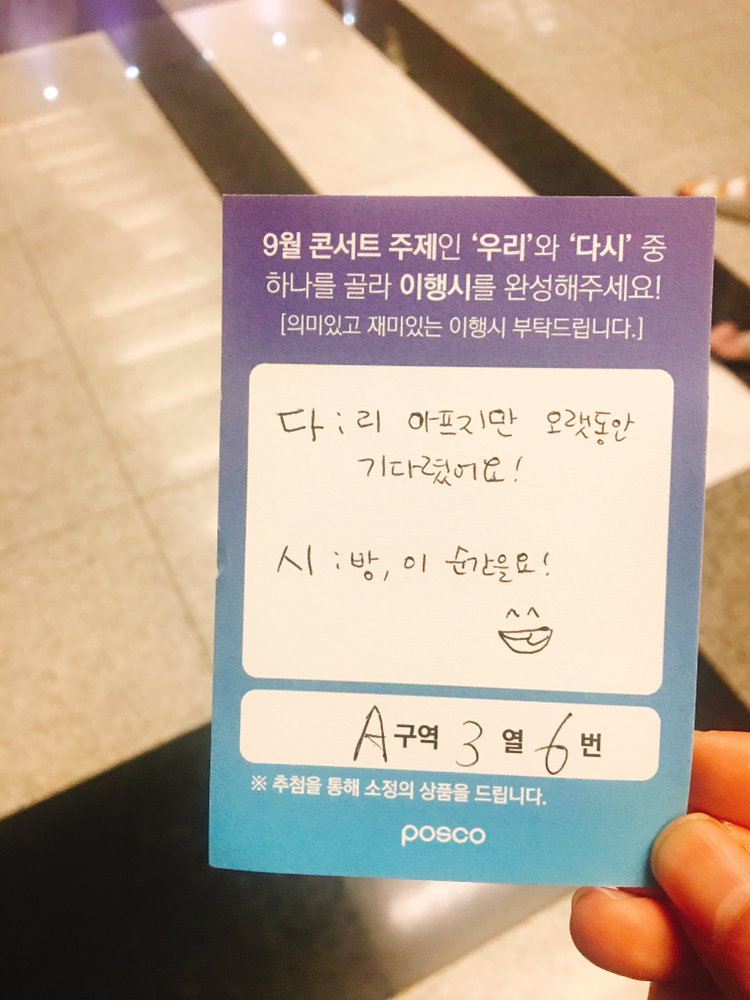 9월 콘서트 주제인 ‘우리’와 ‘다시’ 중
하나를 골라 이행시를 완성해주세요!
[의미있고 재미있는 이행시 부탁드립니다.]
다 : 리 아프지만 오랫동안
기다렸어요!
시 : 방, 이 순간을요!
A구역 3 열 6 번
※ 추첨을 통해 소정의 상품을 드립니다.
posco